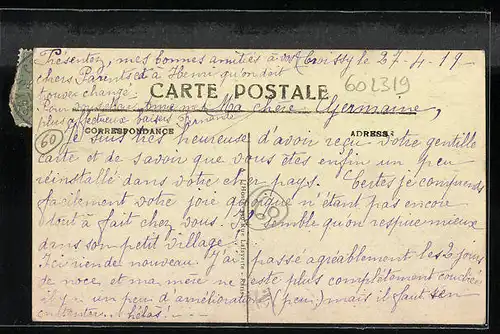 Présentez, mes bonnes amitiés à vos Croissy le 27-4-19
chers Parents et à Henri qu'on doit
trouver changé.
602319
CARTE POSTALE
Pour Ma chère Germaine,
plus affectueux baisers Fernande
CORRESPONDANCE
ADRESSE
60
Je suis très heureuse d'avoir reçu votre gentille
carte et de savoir que vous êtes enfin un peu
réinstallé dans votre cher pays. Certes je comprends
facilement votre joie quoique n'étant pas encore
tout à fait chez vous. Il semble qu'on respire mieux
dans son petit village.
60
Ici rien de nouveau. J'ai passé agréablement les 2 jours
de noce, et ma mère ne reste plus complètement couchée
il y a un peu d'amélioration (peu) mais il faut s'en
contenter... hélas!